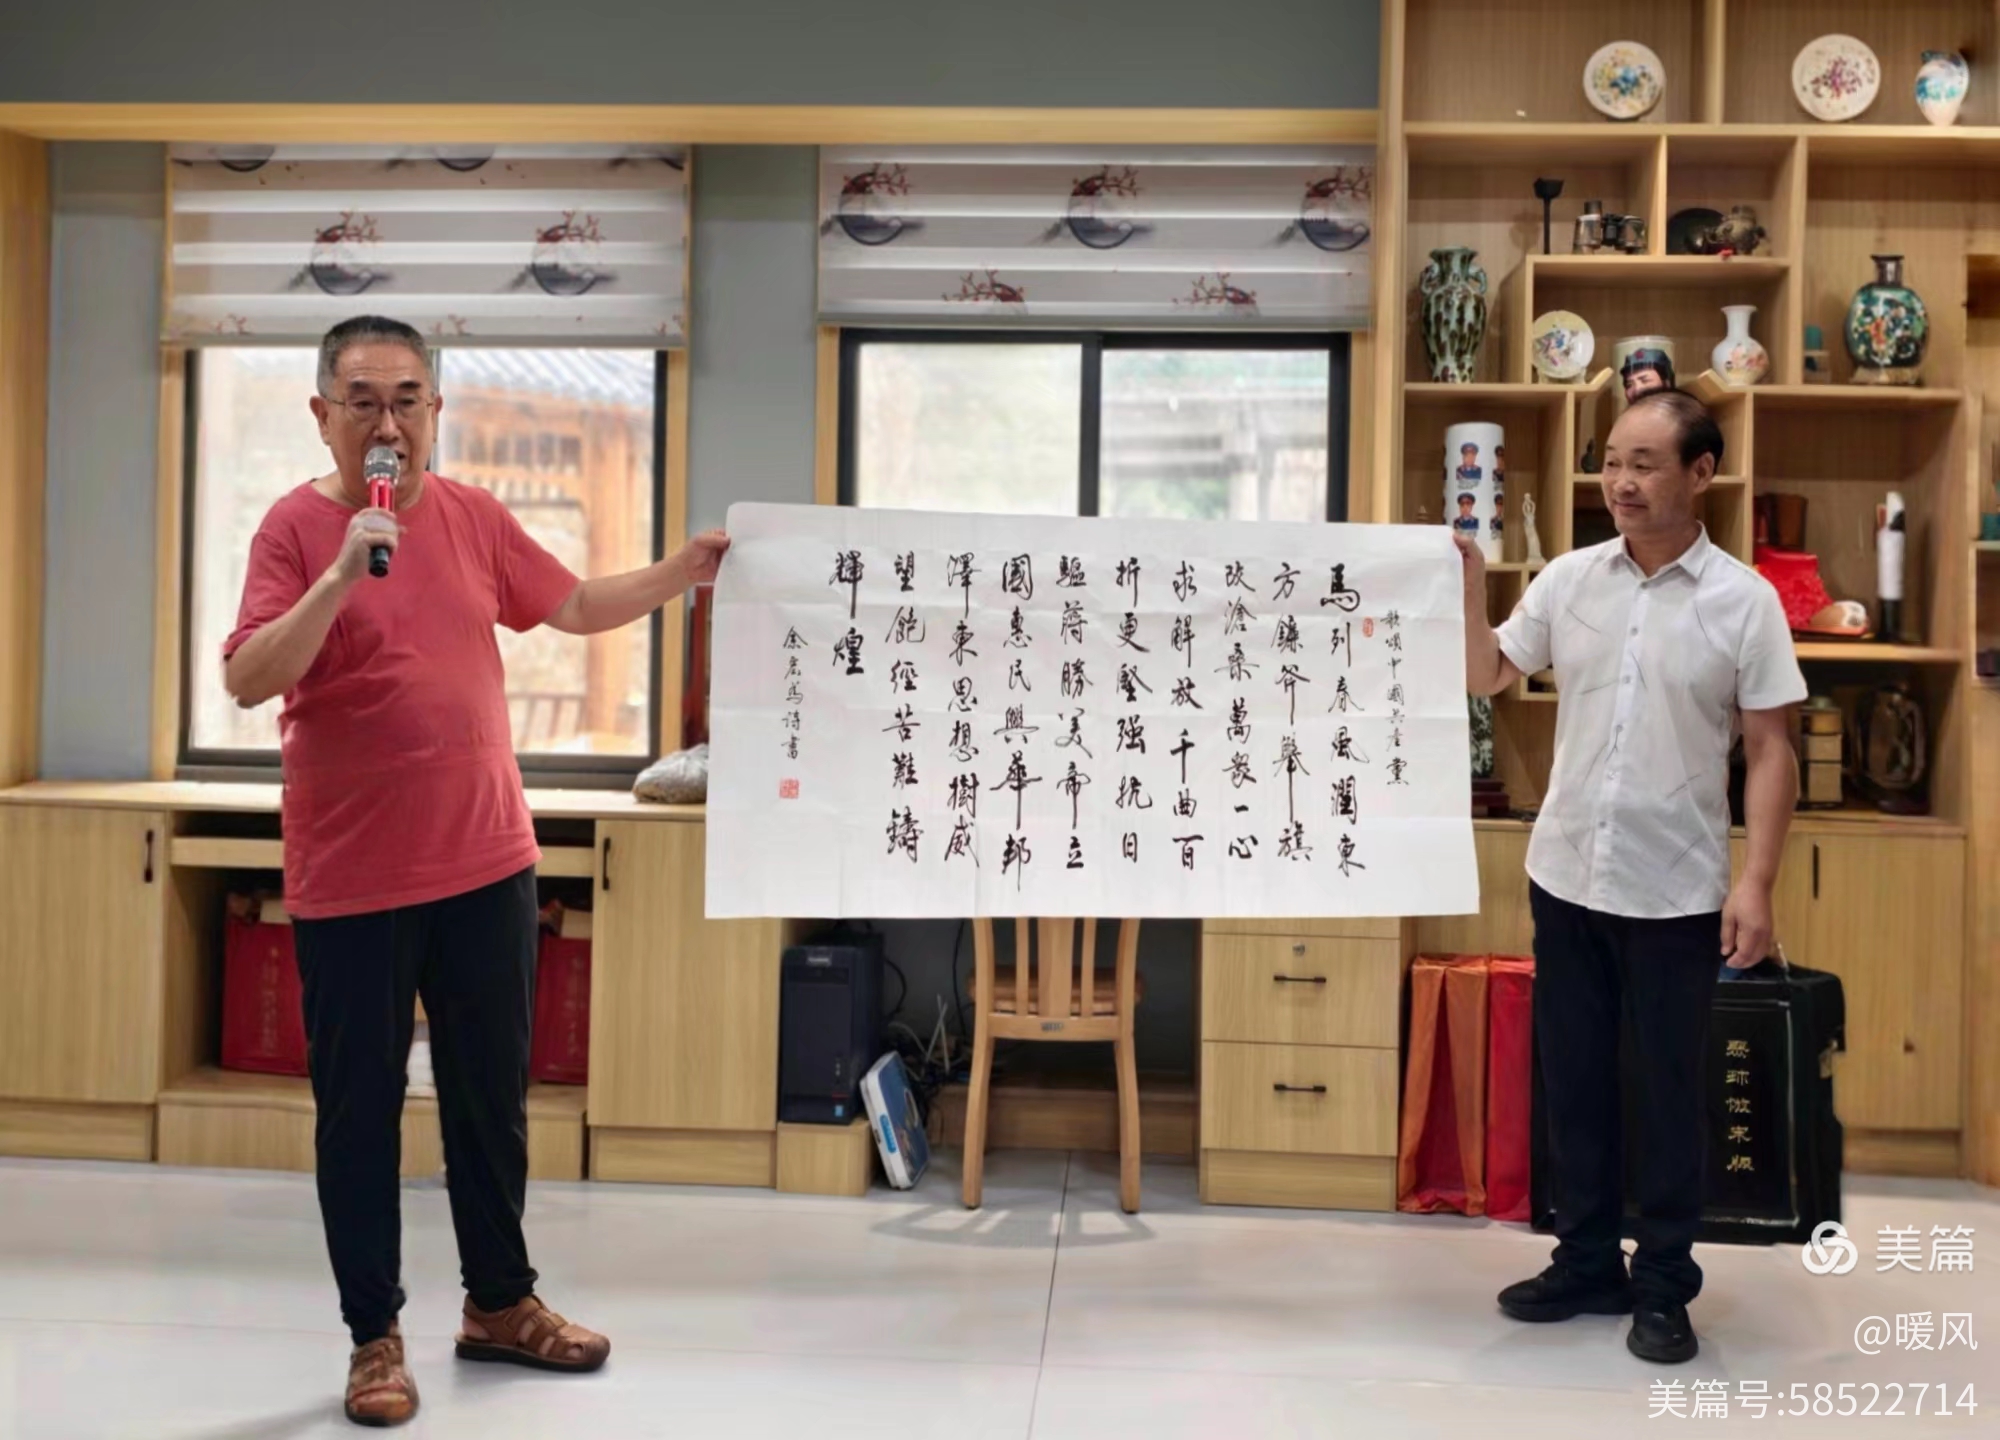 歌頌中國共產黨
馬列春風潤東
方鐮斧舉旗
改滄桑萬眾一心
求解放千曲百
折更堅强抗日
驅蔣勝美帝立
國惠民興華邦
澤東思想樹威
望飽經苦難鑄
輝煌
詩書
美篇
@暖风
美篇号:58522714